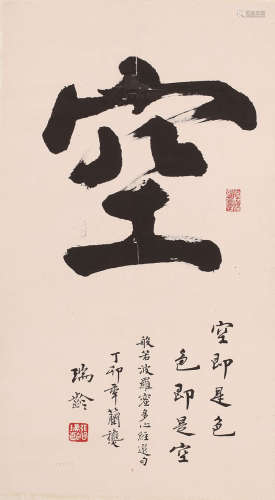 空
空即是色
色即是空
般若波羅蜜多心經選句
丁卯年蘭襟
瑞齡